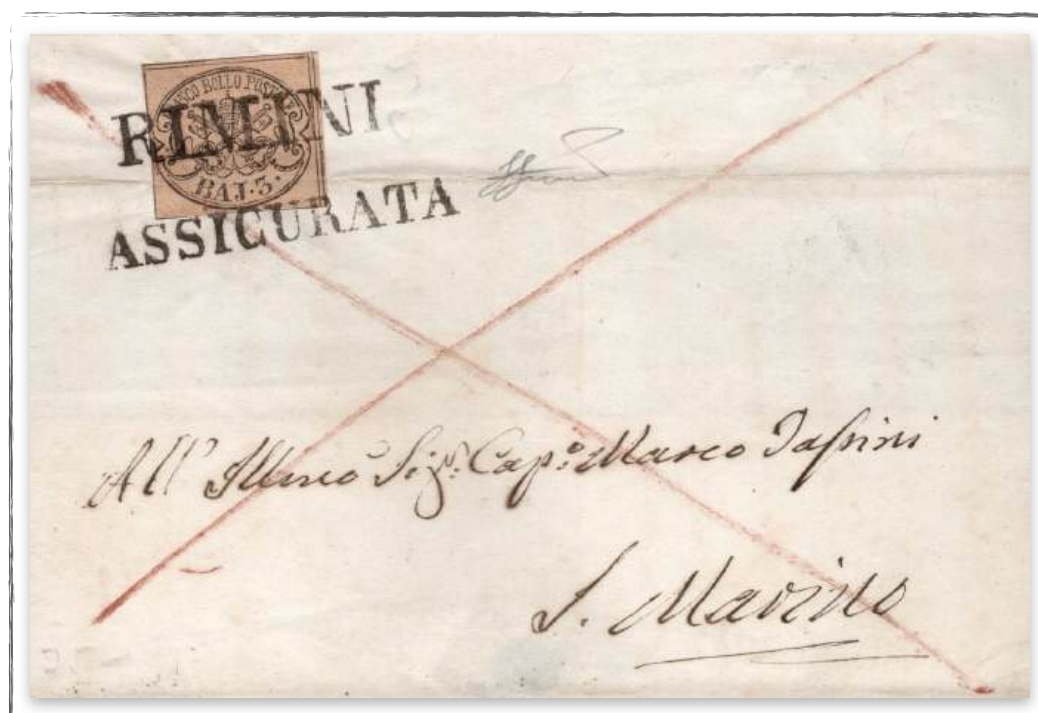 FRANCO BOLLO POSTALE
RIMINI
BAJ. 3.
ASSICURATA
All' Illmo Sigr. Capo. Marco Tassini
S. Marino